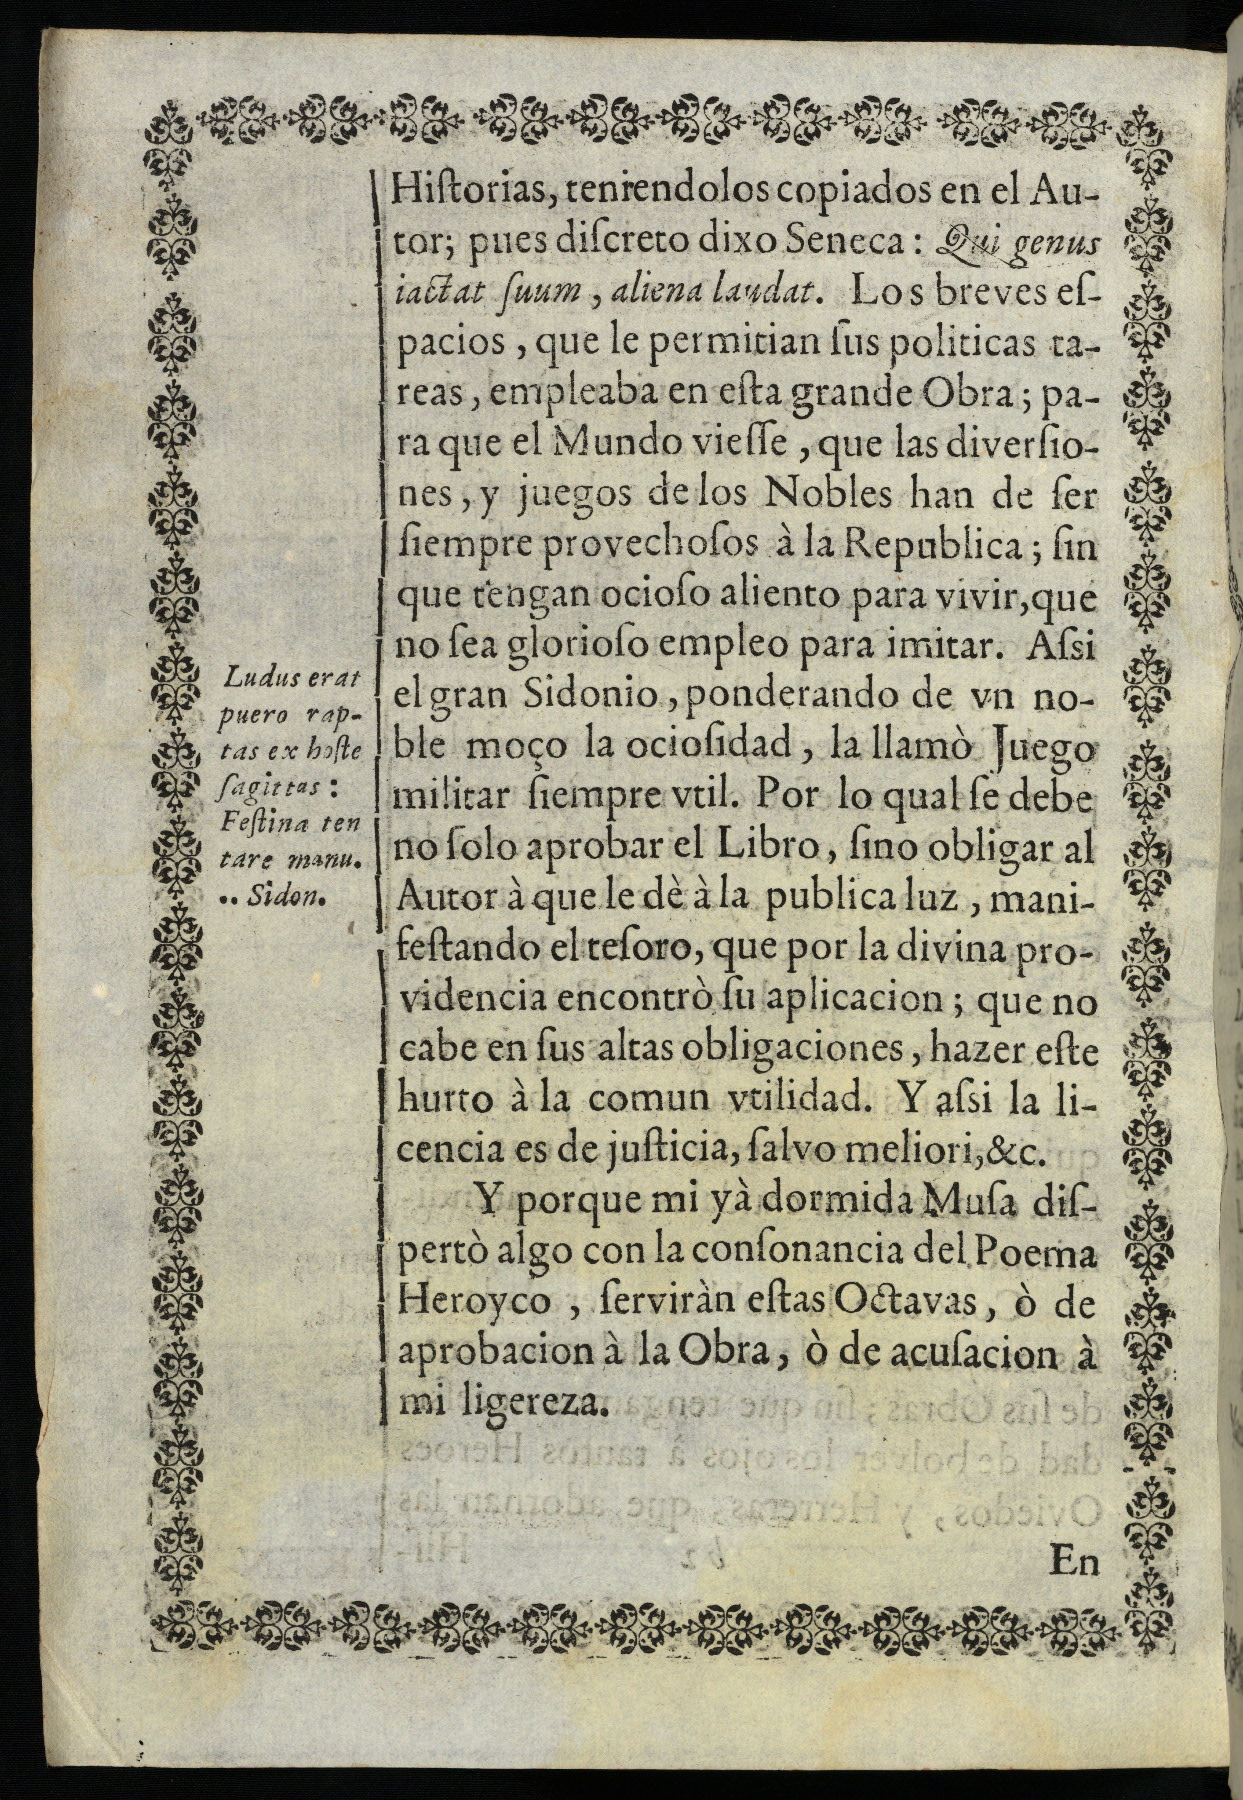 Hiſtorias, teniendolos copiados en el Au-
tor; pues diſcreto dixo Seneca: Qui genus
iactat ſuum, aliena laudat. Los breves eſ-
pacios, que le permitian ſus politicas ta-
reas, empleaba en eſta grande Obra; pa-
ra que el Mundo vieſſe, que las diverſio-
nes, y juegos de los Nobles han de ſer
ſiempre provechoſos à la Republica; ſin
que tengan ocioſo aliento para vivir, que
no ſea glorioſo empleo para imitar. Aſsi
el gran Sidonio, ponderando de vn no-
ble moço la ocioſidad, la llamò Juego
militar ſiempre vtil. Por lo qual ſe debe
no ſolo aprobar el Libro, ſino obligar al
Autor à que le dè à la publica luz, mani-
feſtando el teſoro, que por la divina pro-
videncia encontrò ſu aplicacion; que no
cabe en ſus altas obligaciones, hazer eſte
hurto à la comun vtilidad. Y aſsi la li-
cencia es de juſticia, ſalvo meliori, &c.
Y porque mi yà dormida Muſa diſ-
pertò algo con la conſonancia del Poema
Heroyco, ſerviràn eſtas Octavas, ò de
aprobacion à la Obra, ò de acuſacion à
mi ligereza.
Ludus erat
puero rap-
tas ex hoſte
ſagittas:
Feſtina ten
tare manu.
.. Sidon.
En